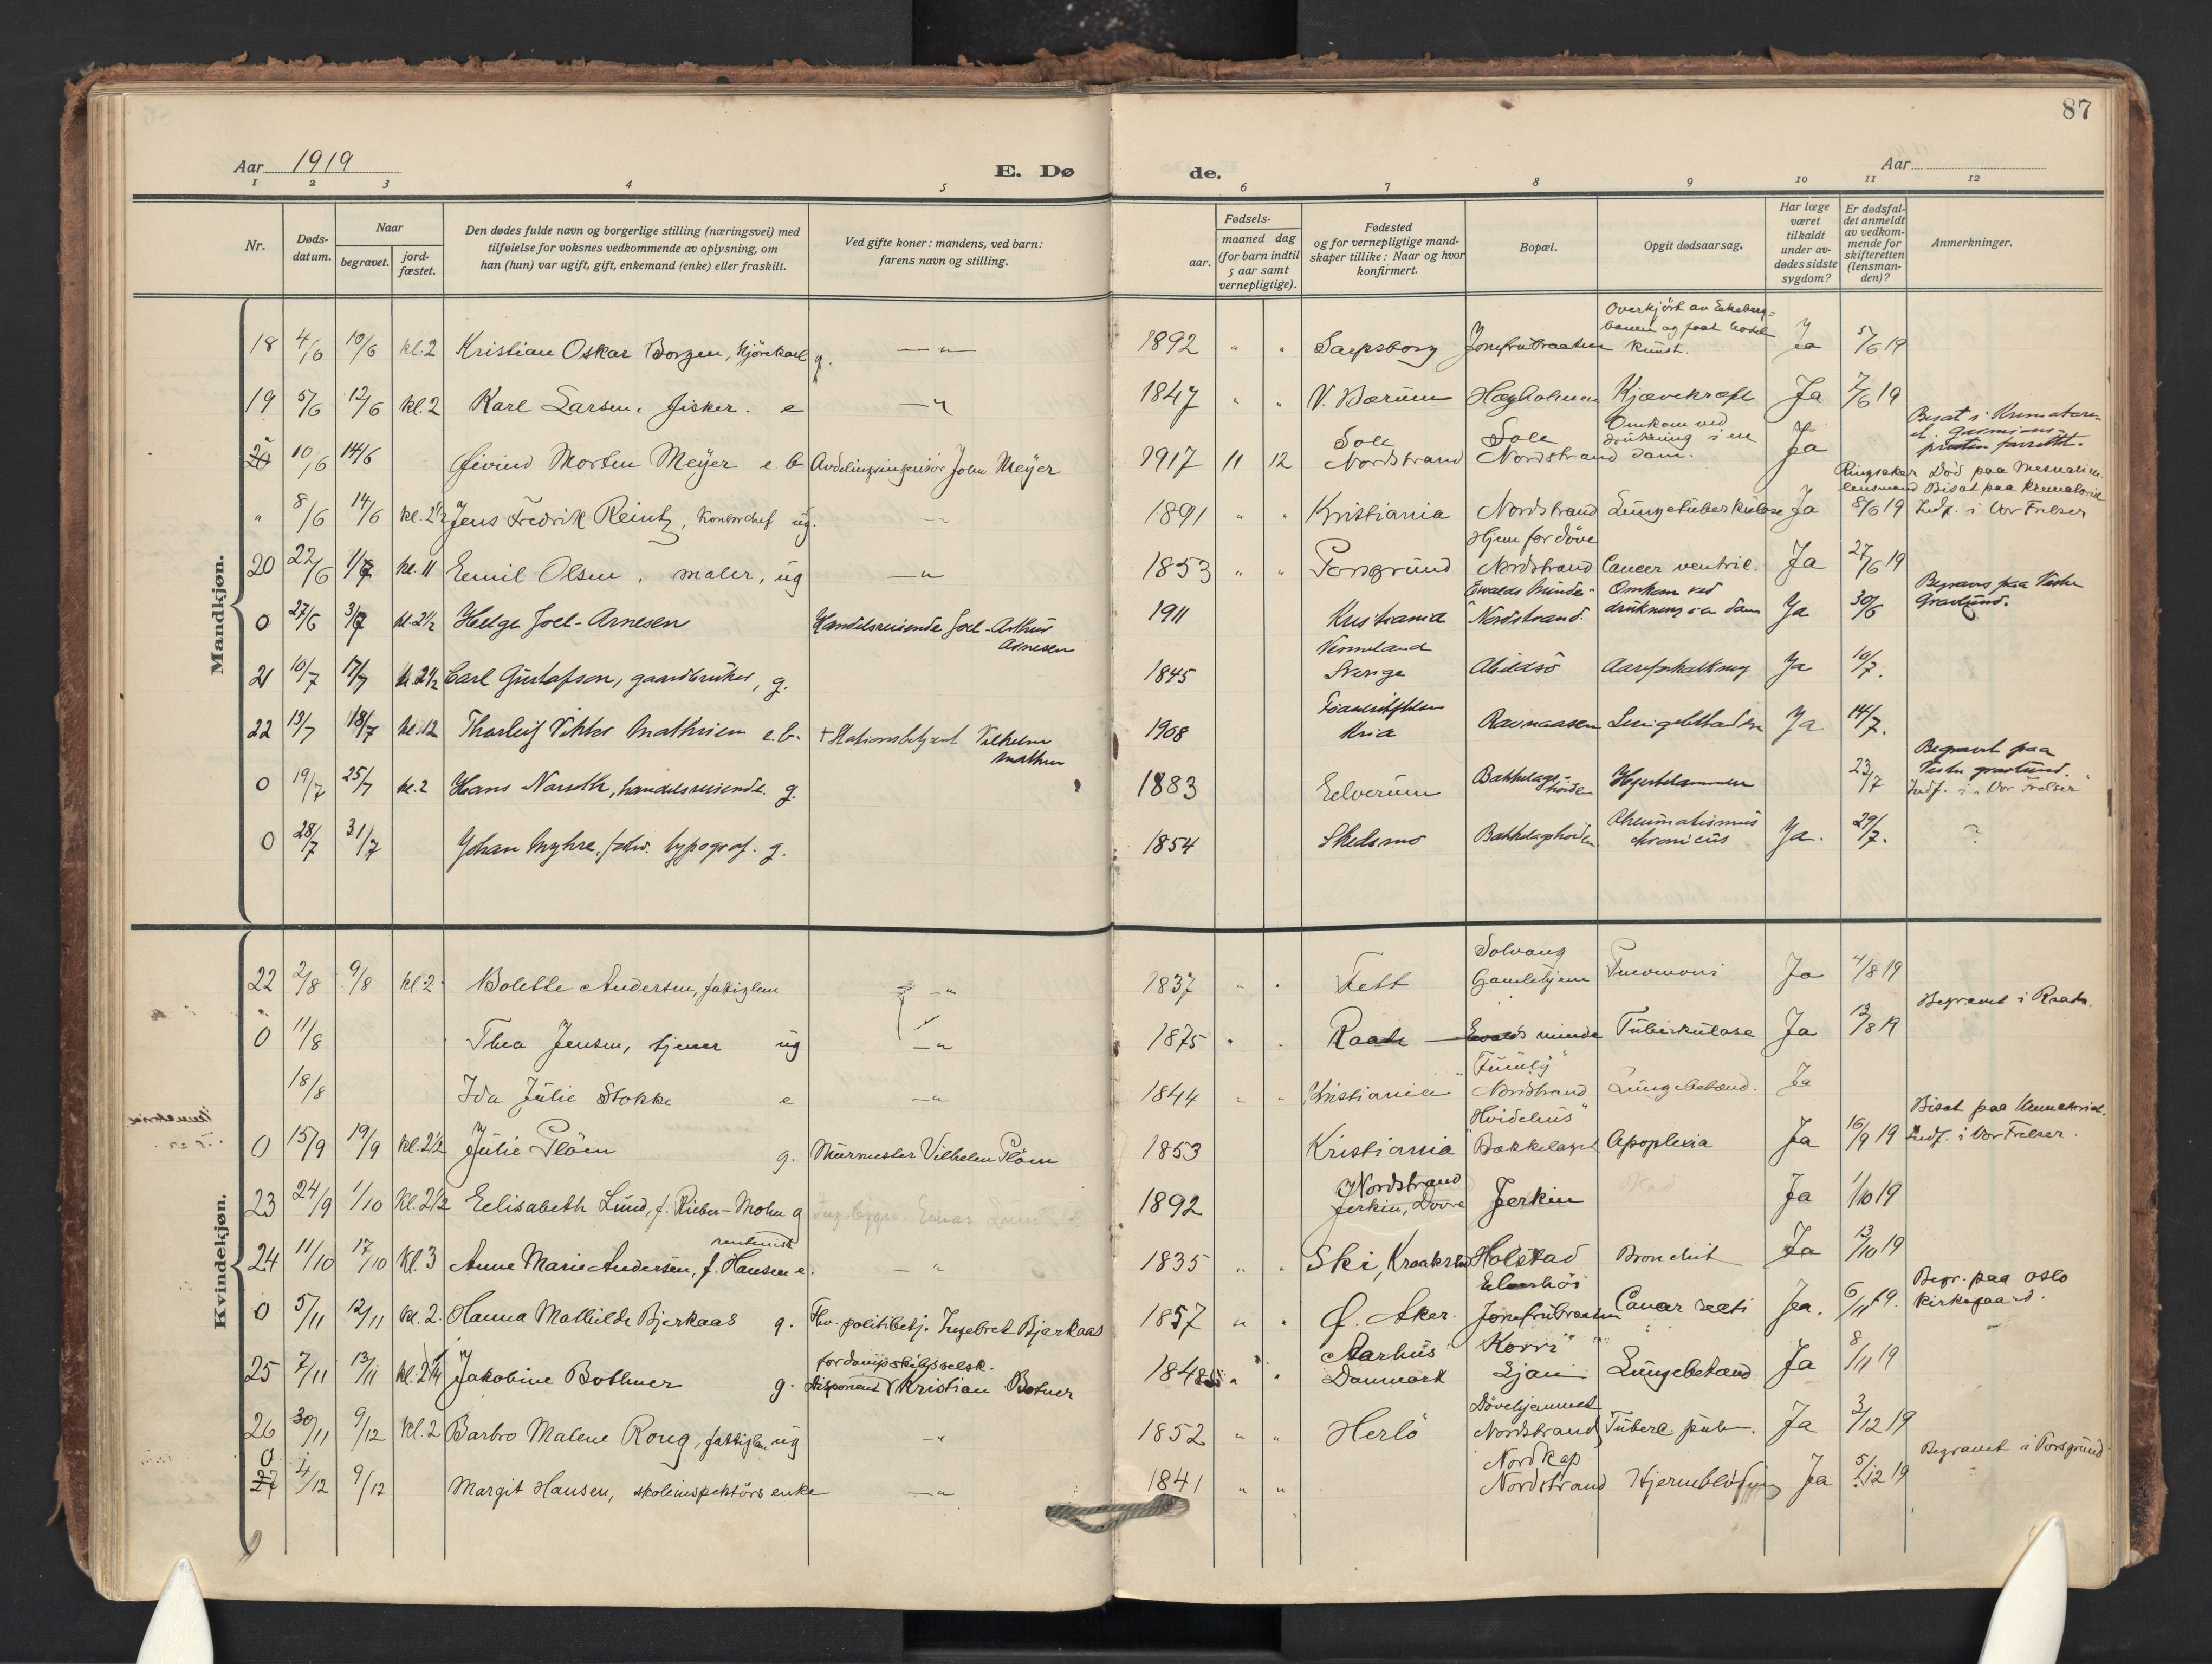 87
Aar 1919
E. Dø
de.
Aar
1 2 3 4 5 6 7 8 9 10 11 12
Nr.
Døds-
datum.
Naar
begravet.
jord-
fæstet.
Den dødes fulde navn og borgerlige stilling (næringsvei) med
tilføielse for voksnes vedkommende av oplysning, om
han (hun) var ugift, gift, enkemand (enke) eller fraskilt.
Ved gifte koner: mandens, ved barn:
farens navn og stilling.
Fødsels-
aar.
maaned dag
(for barn indtil
5 aar samt
vernepligtige).
Fødested
og for vernepligtige mand-
skaper tillike: Naar og hvor
konfirmert.
Bopæl.
Opgit dødsaarsag.
Har læge
været
tilkaldt
under av-
dødes sidste
sygdom?
Er dødsfal-
det anmeldt
av vedkom-
mende for
skifteretten
(lensman-
den)?
Anmerkninger.
Mandkjøn.
Overkjørt av Ekeberg-
banen og faat hodet
18 4/6 10/6 kl. 2 Kristian Oskar Borgen, kjørekarl g. 1892 " " Sarpsborg Jomfrubraaten knust. Ja 5/6 19
19 5/6 12/6 kl. 2 Karl Larsen, fisker. e 1847 " " V. Bærum Hægholmen Kjævekræft Ja 7/6 19
Bisat i Krematori-
Sole Sole Omkom ved
drukning i en
10/6 14/6 Øivind Morten Meyer e. b Avdelingsingeniør John Meyer 1917 11 12 Nordstrand Nordstrand dam. Ja
Ringsaker Død paa Mesnalien
lensmand Bisat paa Krematoriet
" 8/6 14/6 kl. 2½ Jens Fredrik Reintz, kontorchef ug. 1891 " " Kristiania Nordstrand Lungetuberkulose Ja 8/6 19 Indf. i Vor Frelser
Hjem for døve
20 22/6 1/7 kl. 11 Emil Olsen, maler, ug 1853 " " Porsgrund Nordstrand Cancer ventric. Ja 27/6 19
Ewalds Minde Omkom ved Begravs paa Vestre
0 27/6 3/7 kl. 2½ Helge Joel-Arnesen Handelsreisende Joel-Arthur 1911 Kristiania Nordstrand. drukning i en dam Ja 30/6 Gravlund.
Arnesen
Vermeland
21 10/7 17/7 kl. 2½ Carl Gustafson, gaardbruker, g. 1845 Sverige Abildsø Aareforkalkning Ja 10/7.
22 13/7 18/7 kl. 12 Thorleif Viktor Mathisen e. b. + Stationsbetjent Vilhelm 1908 Kria Ravnaasen Ja 14/7.
Begravet paa
Vestre gravlund.
0 19/7 25/7 kl. 2 Hans Narseth, handelsreisende. g. 1883 Elverum Bækkelags-
høiden Hjertelammelse 23/7 Indf. i "Vor Frelser"
Rheumatismus
0 28/7 31/7 Johan Myhre, fhv. typograf. g. 1854 Skedsmo Bækkelagshøiden chronicus Ja. 29/7. ?
Kvindekjøn.
Solvang
22 2/8 9/8 kl. 2 Bolette Andersen, fattiglem 1837 " " Fett Gamlehjem Pneumoni Ja 4/8 19
Begravet i Raade.
0 11/8 Thea Jensen, tjener ug 1875 " " Raade Ewalds minde Tuberkulose Ja 12/8 19
18/8 Ida Julie Stokke e 1844 " " Kristiania Nordstrand Lungebetænd. Ja
"Hvidehus" Bisat paa Krematoriet.
0 15/9 19/9 kl. 2½ Julie Pløen g. Murmester Vilhelm Pløen 1853 Kristiania Bækkelaget Apoplexia Ja 16/9 19 Indf. i Vor Frelser.
Nordstrand
23 24/9 1/10 kl. 2½ Elisabeth Lund, f. Rieber-Mohn g 1892 Jerkin, Dovre Jerkin Ja 1/10 19
rentenist
24 11/10 17/10 kl. 3 Anne Marie Andersen, f. Hansen e. 1835 " " Ski, Kraakstad Holstad Bronchit Ja 13/10 19
Begr. paa Oslo
0 5/11 12/11 kl. 2. Hanna Mathilde Bjerkaas g. Fhv. politibetj. Ingebret Bjerkaas 1857 " " Ø. Aker Jomfrubraaten Cancer recti Ja. 6/11 19. kirkegaard.
for dampskibsselsk. Aarhus "Korri"
25 7/11 13/11 Jakobine Bothner g. disponent Kristian Botner 184 " Danmark Ljan Lungebetænd Ja 8/11 19
Døvehjemmet
26 30/11 9/12 kl. 2 Barbro Malene Rong, fattiglem ug 1852 " " Herlø Nordstrand Tuberc. pulm. Ja 3/12 19
Nordkap Begravet i Porsgrund
0
27 4/12 9/12 Margit Hansen, skoleinspektørs enke 1841 " " Nordstrand Hjerneblødning Ja 5/12 19